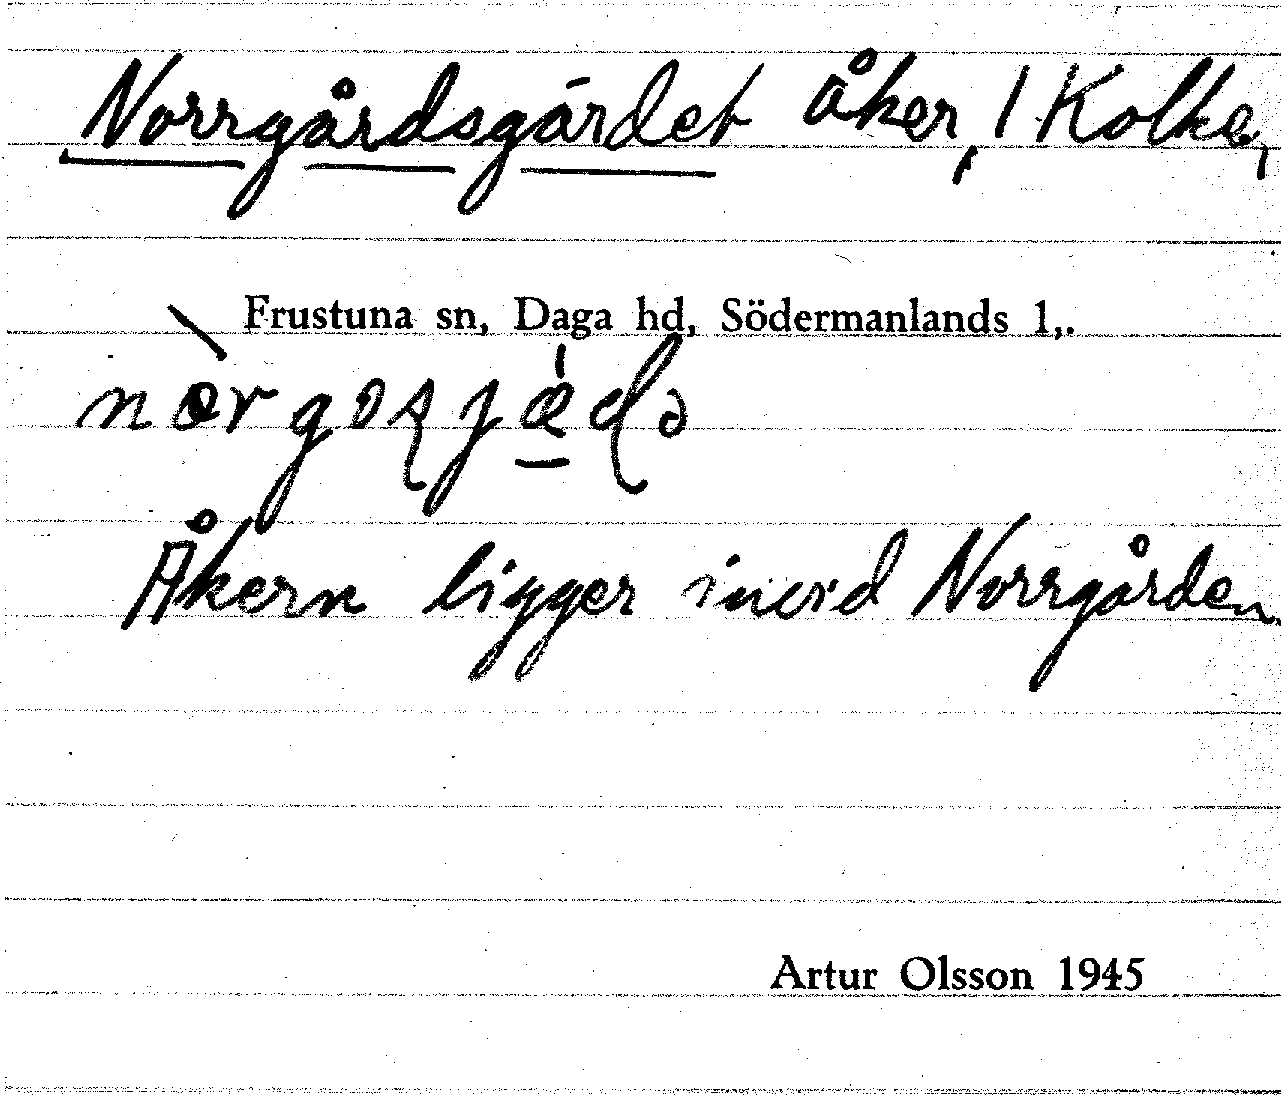 Norrgårdsgärdet åker, 1 Kolke,
Frustuna sn, Daga hd, Södermanlands l,.
Åkern ligger invid Norrgården.
Artur Olsson 1945